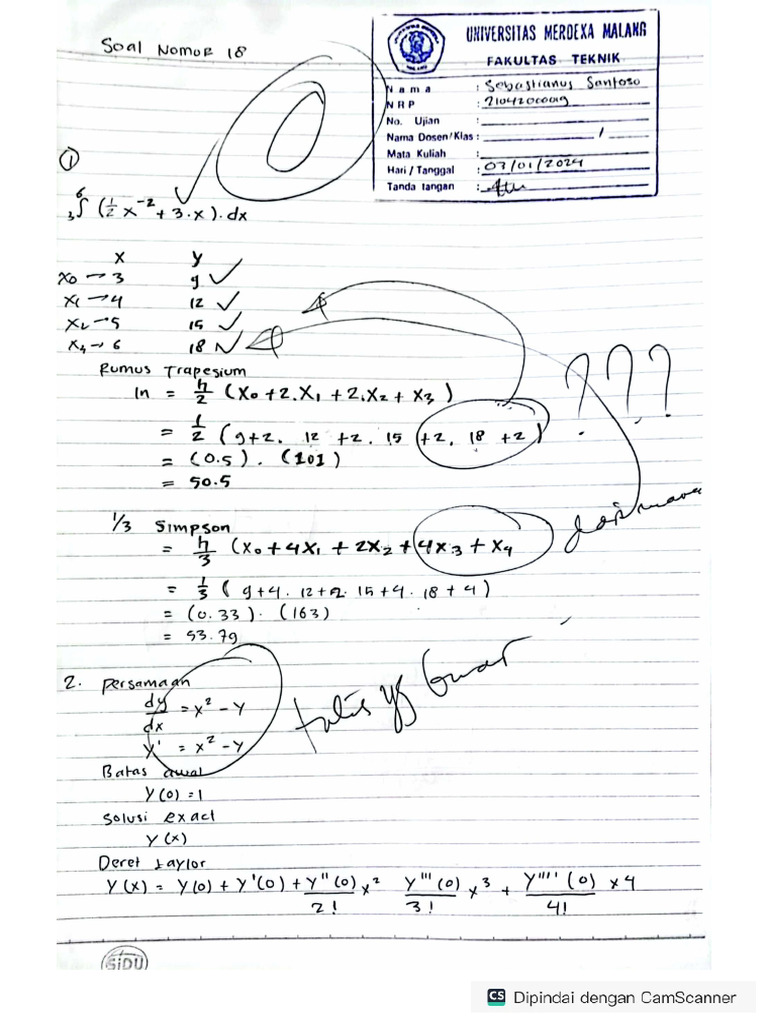 Soal Nomor 18
UNIVERSITAS MERDEKA MALANG
FAKULTAS TEKNIK
Nama : Sebastianus Santoso
NRP : 21042000019
No. Ujian :
Nama Dosen/Klas : /
Mata Kuliah :
Hari / Tanggal : 03/01/2024
Tanda tangan :
0
①
₃∫⁶ (½ x⁻² + 3·x).dx
X Y
X₀ → 3 9
X₁ → 4 12
X₂ → 5 15
X₄ → 6 18
Rumus Trapesium
In = h/2 (X₀+2.X₁+2.X₂+X₃)
= 1/2 (9+2. 12 +2. 15 +2. 18 +2)
???
= (0.5). (101)
= 50.5
1/3 Simpson
= h/3 (X₀+4X₁+2X₂+4X₃+X₄
= 1/3 (9+4.12+2.15+4.18+4)
= (0.33). (163)
= 53.79
2. Persamaan
dy/dx = x²-y
y' = x²-y
tulis yg benar
Batas awal
Y(0) =1
Solusi exact
Y(x)
Deret taylor
Y(x) = Y(0) + Y'(0) + Y''(0)/2! x² Y'''(0)/3! x³ + Y''''(0)/4! x4
SiDU
CS Dipindai dengan CamScanner